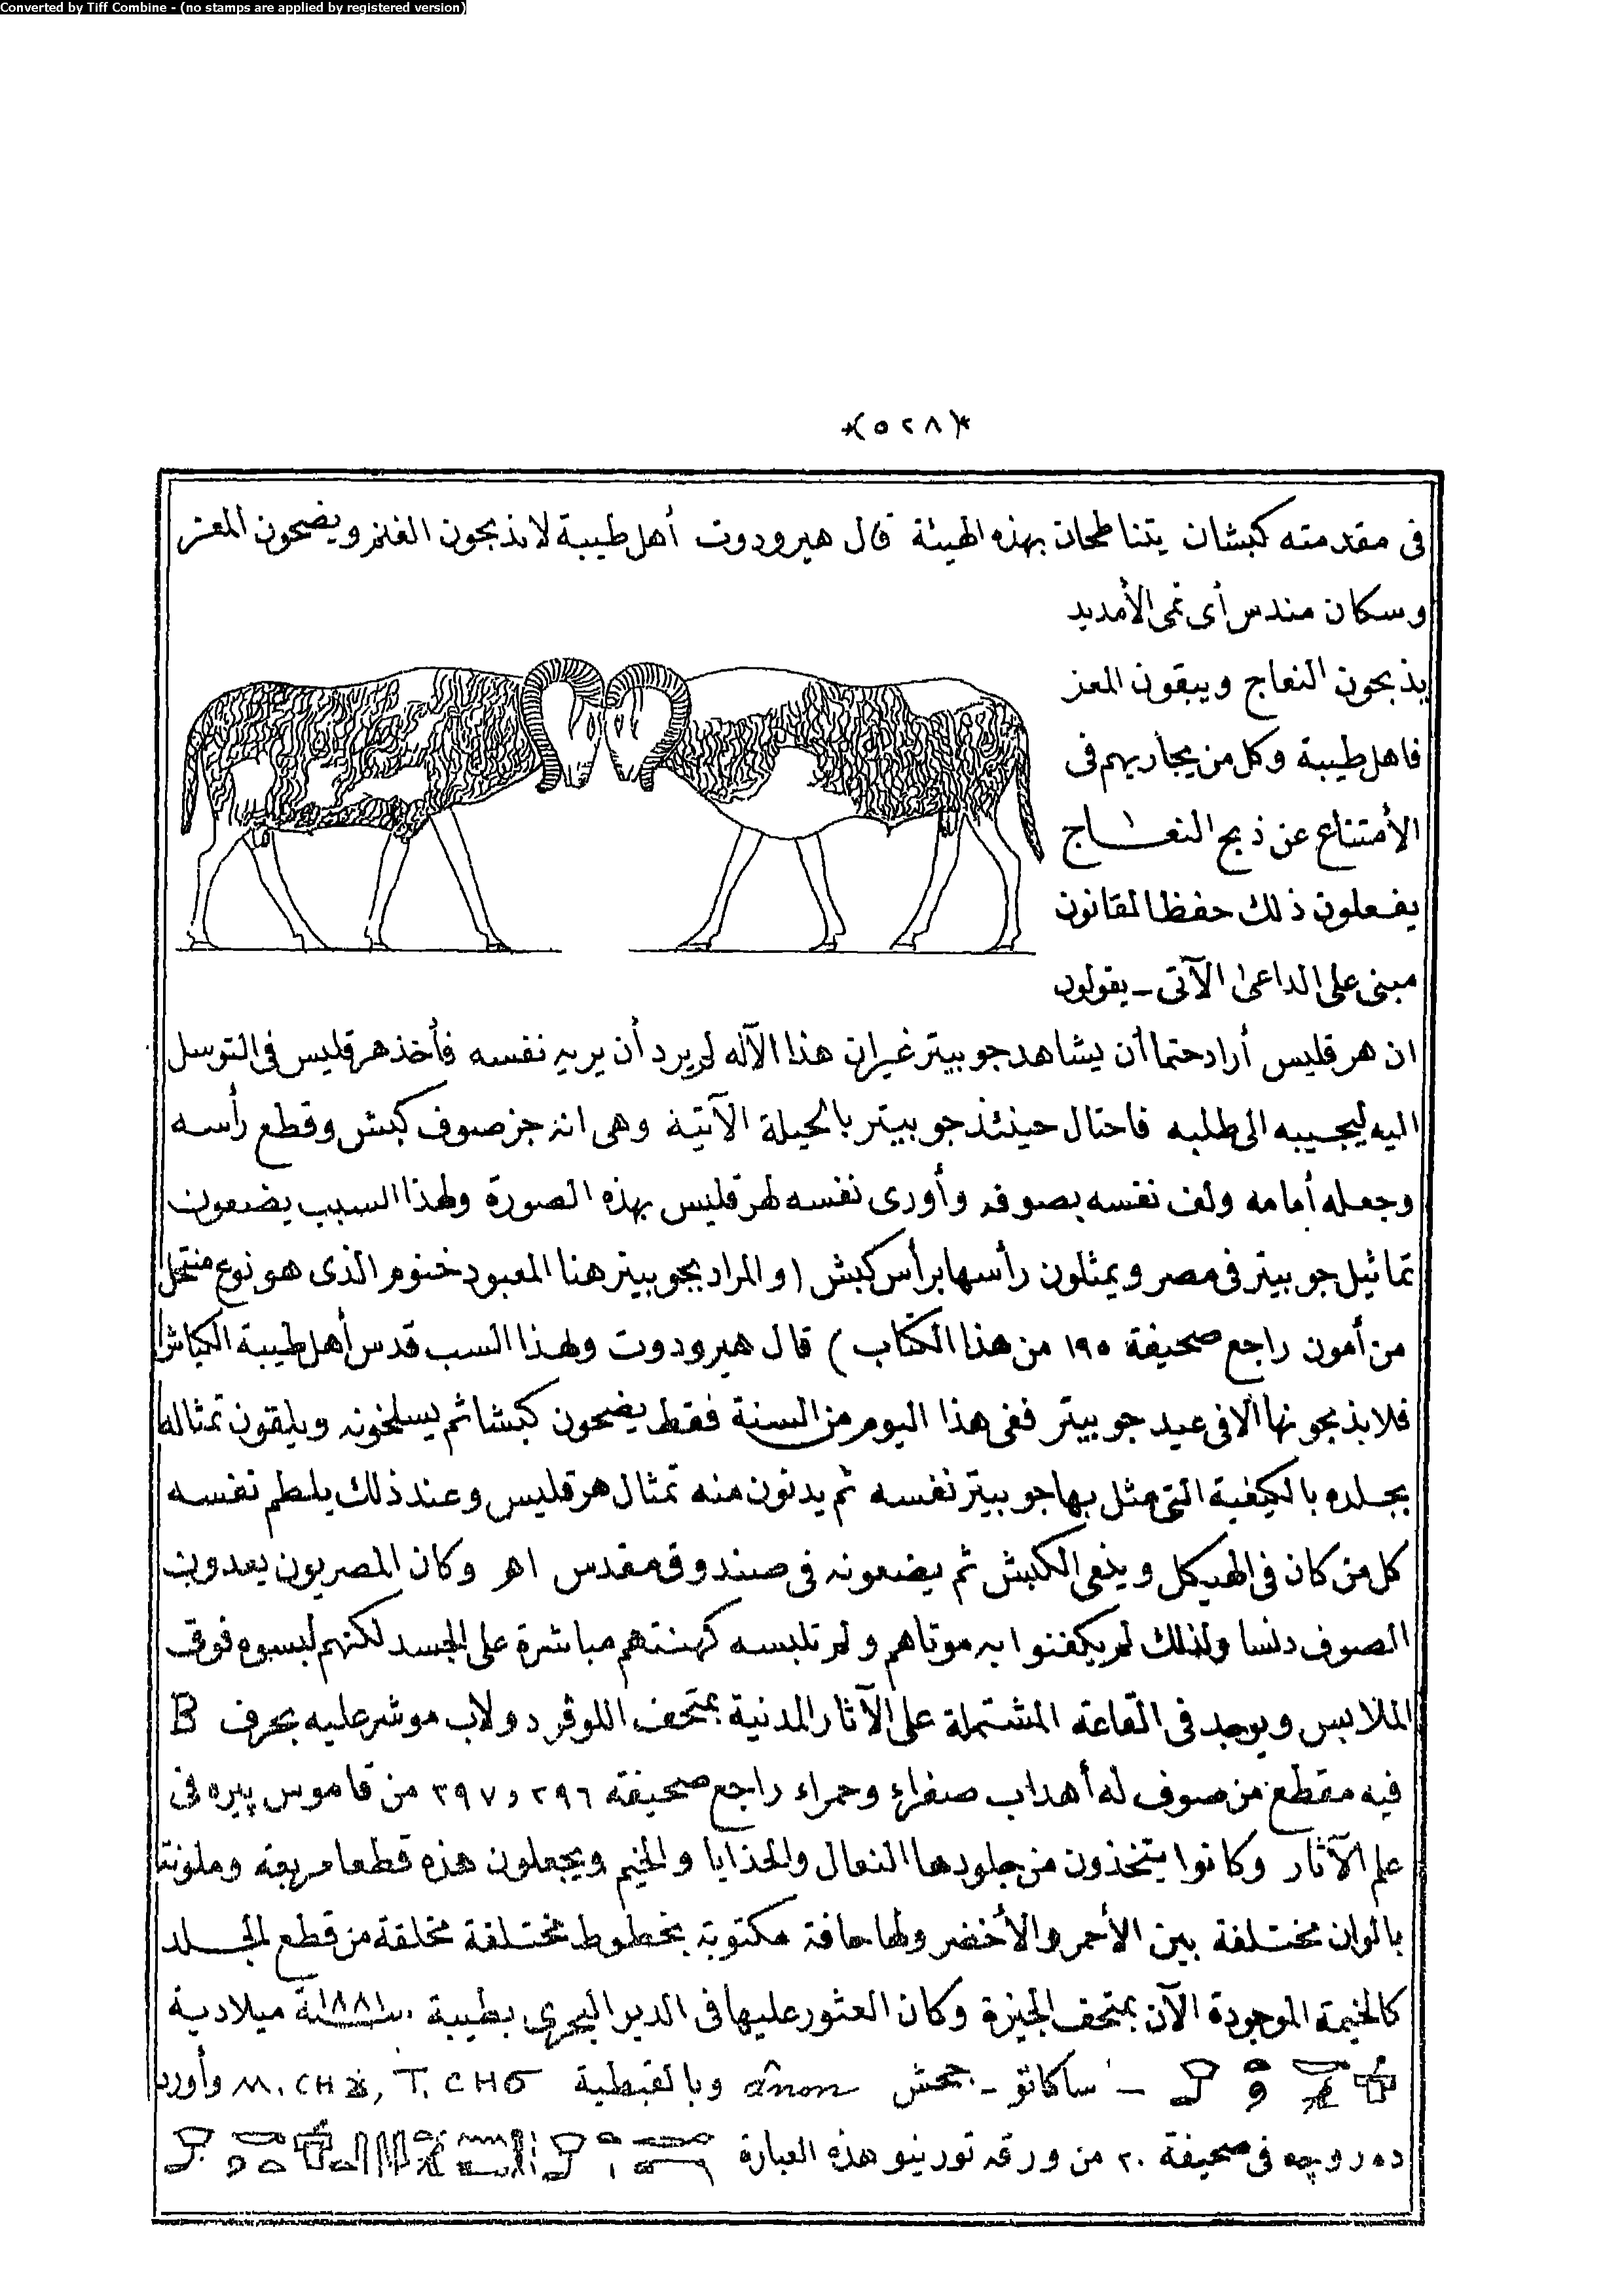 Converted by Tiff Combine - (no stamps are applied by registered version)
*(٥٢٨)*
فى مقدمته كبشان يتناطحان بهذه الهيئة قال هيرودوت أهل طيبة لا يذبحون الغنم ويضحون المعز
وسكان مندس أى تمى الأمديد
يذبحون النعاج ويبقون المعز
فاهل طيبة وكل من يجاريهم فى
الأمتناع عن ذبح النعاج
يفعلون ذلك حفظا لقانون
مبنى على الداعى الآتى - يقولون
ان هرقليس أراد حتما أن يشاهد جوبيتر غير ان هذا الآله لم يرد أن يريه نفسه فأخذ هرقليس فى التوسل
اليه ليجيبه الى طلبه فاحتال حينئذ جوبيتر بالحيلة الآتية وهى انه جز صوف كبش وقطع رأسه
وجعله أمامه ولف نفسه بصوفه وأورى نفسه لهرقليس بهذه الصورة ولهذا السبب يضعون
تماثيل جوبيتر فى مصر ويمثلون رأسها برأس كبش (والمراد بجوبيتر هنا المعبود خنوم الذى هو نوع منتحل
من أمون راجع صحيفة ١٩٥ من هذا الكتاب) قال هيرودوت ولهذا السب قدس أهل طيبة الكباش
فلا يذبحونها الا فى عيد جوبيتر ففى هذا اليوم من السنة فقط يضحون كبشا ثم يسلخونه ويلقون تمثاله
بجلده بالكيفية التى مثل بها جوبيتر نفسه ثم يدنون منه تمثال هرقليس وعند ذلك يلطم نفسه
كل من كان فى الهيكل وينعى الكبش ثم يضعونه فى صندوق مقدس اهـ وكان المصريون يعدون
الصوف دنسا ولذلك لم يكفنوا به موتاهم ولم تلبسه كهنتهم مباشرة على الجسد لكنهم لبسوه فوق
الملابس ويوجد فى القاعة المشتملة على الآثار المدنية بمتحف اللوڤر دولاب موشر عليه بحرف B
فيه مقطع من صوف له أهداب صفراء وحمراء راجع صحيفة ٢٩٦ و ٣٩٧ من قاموس پيره فى
علم الآثار وكانوا يتخذون من جلودها النعال والحذايا والخيم ويجعلون هذه قطعا مربعة وملونة
بالوان مختلفة بين الأحمر والأخضر ولها حافة مكتوبة بخطوط مختلفة مخلقة من قطع الجلد
كالخيمة الموجودة الآن بمتحف الجيزة وكان العثور عليها فى الدير البحرى بطيبة سنة ١٨٨١ ميلادية
- ساكاتو - جحش ânon وبالقبطية M. CHX, T. CHϬ وأورد
ده روچه فى صحيفة ٢٠ من ورقة تورينو هذه العبارة